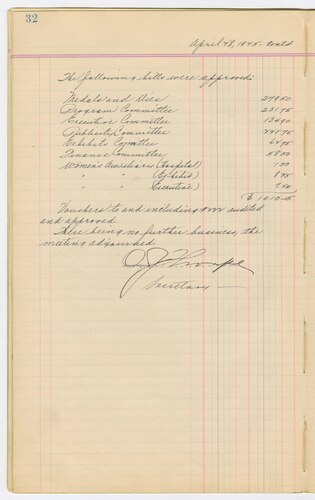 32
April 28, 1925 - Contd
The following bills were approved:
Medals and Dies 279.50
Program Committee 231.75
Executive Committee 134.90
Publicity Committee
Exhibits Committee
Finance Committee 58.50
Women's Auxiliaries (Hospital) 1.50
" " (Exhibit) 8.75
" " Executive) 7.75
$ 1010.15
Vouchers to and including audited
and approved.
There being no further business, the
meeting adjourned.
Secretary